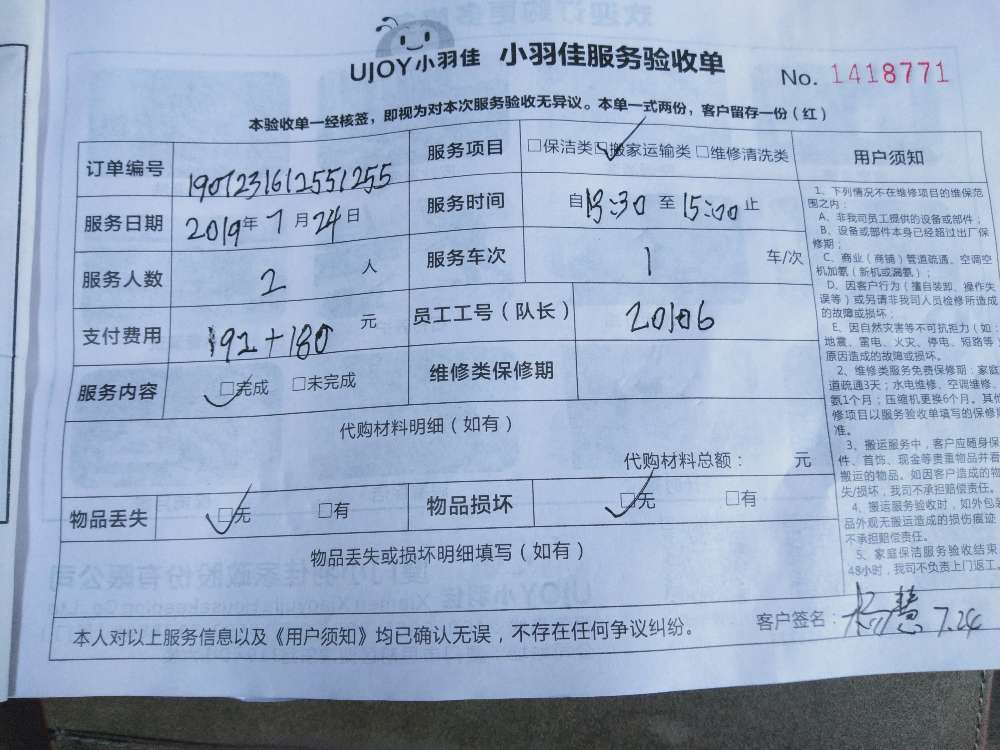 UJOY小羽佳 小羽佳服务验收单 No. 1418771
本验收单一经核签，即视为对本次服务验收无异议。本单一式两份，客户留存一份（红）
订单编号 1907231612551255 服务项目 □保洁类 ☑搬家运输类 □维修清洗类
服务日期 2019年7月24日 服务时间 自13:30至15:00止
服务人数 2 人 服务车次 1 车/次
支付费用 192+180 元 员工工号（队长） 20106
服务内容 ☑完成 □未完成 维修类保修期
代购材料明细（如有）
代购材料总额： 元
物品丢失 ☑无 □有 物品损坏 ☑无 □有
物品丢失或损坏明细填写（如有）
本人对以上服务信息以及《用户须知》均已确认无误，不存在任何争议纠纷。 客户签名：杨慧 7.24
用户须知
1、下列情况不在维修项目的维保范
围之内：
A、非我司员工提供的设备或部件；
B、设备或部件本身已经超过出厂保
修期；
C、商业（商铺）管道疏通、空调空
机加氨（新机或漏氨）；
D、因客户行为（擅自装卸、操作失
误等）或另请非我司人员检修所造成
的故障或损坏；
E、因自然灾害等不可抗拒力（如：
地震、雷电、火灾、停电、短路等
原因造成的故障或损坏。
2、维修类服务免费保修期：家庭
道疏通3天；水电维修、空调维修、
氨1个月；压缩机更换6个月。其他
修项目以服务验收单填写的保修期
准。
3、搬运服务中，客户应随身保
件、首饰、现金等贵重物品并看
搬运的物品。如因客户造成的物
失/损坏，我司不承担赔偿责任。
4、搬运服务验收时，如外包装
品外观无搬运造成的损伤痕迹
不承担赔偿责任。
5、家庭保洁服务验收结束
48小时，我司不负责上门返工。